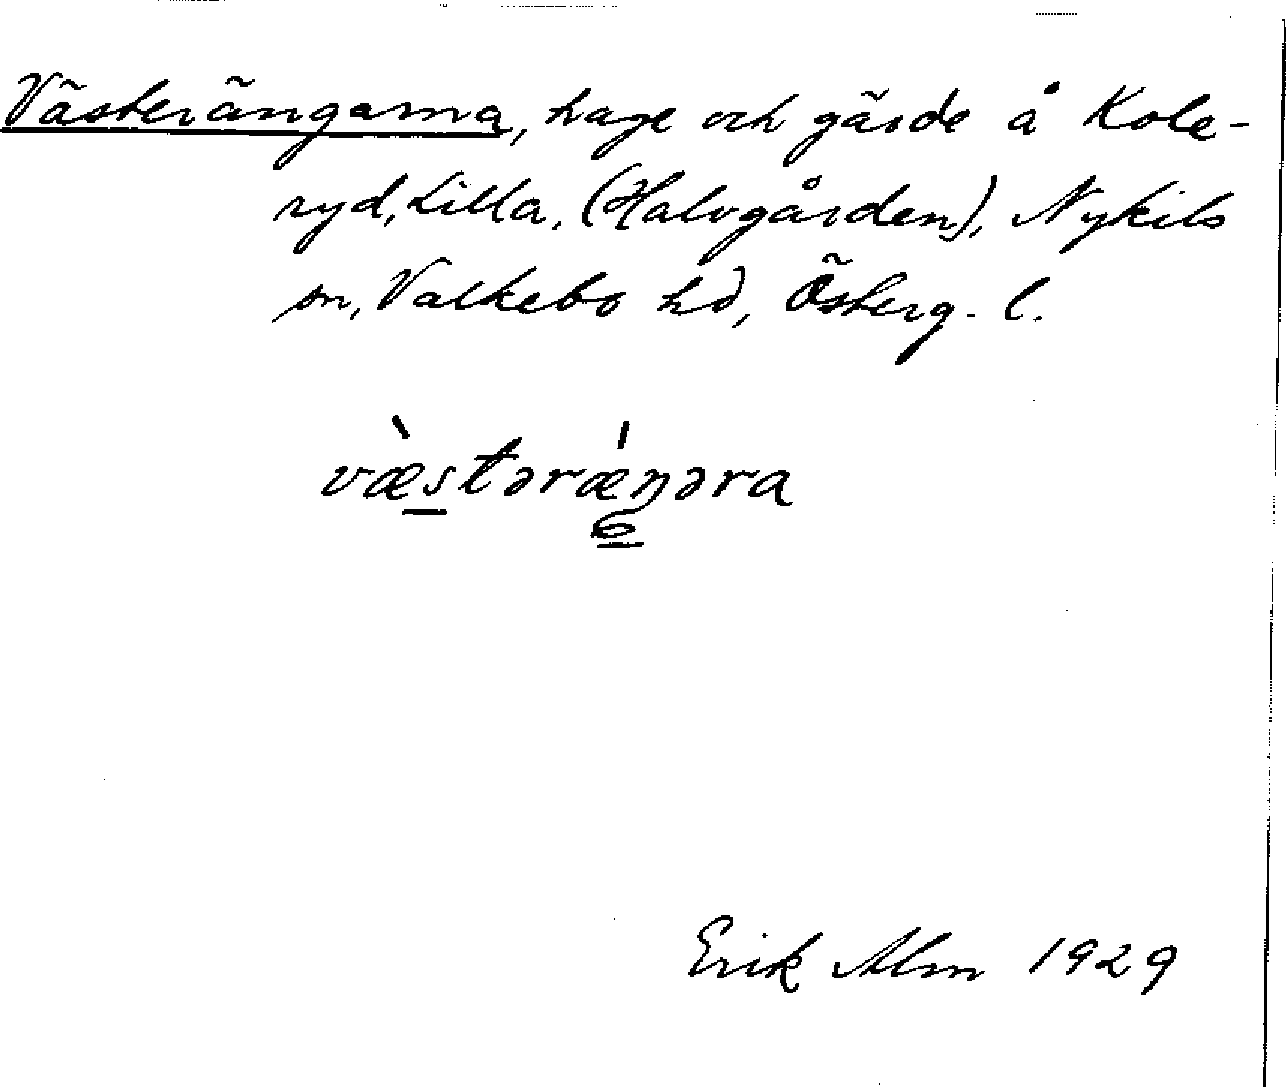 Västerängarna, hage och gärde å Kole-
ryd, Lilla, (Halvgården), Nykils
sn, Valkebo hd, Österg. l.
væ̀stərǽŋəra
Erik Alm 1929